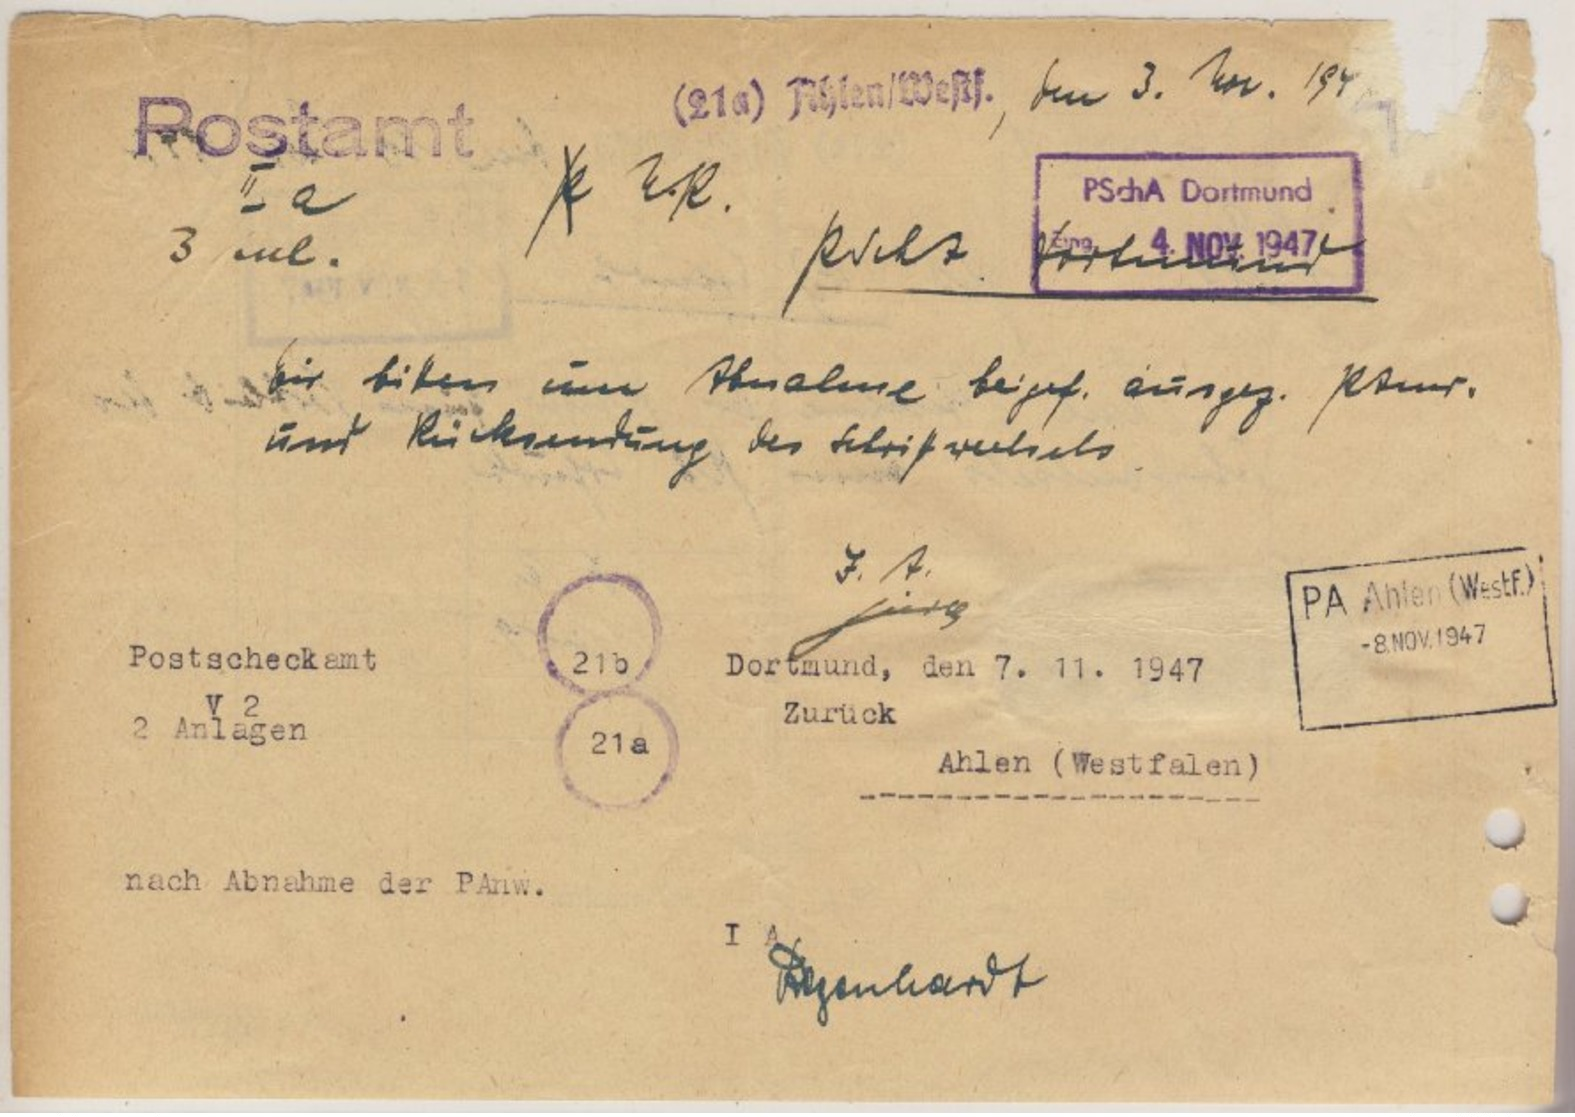 Postamt
(21a) Ahlen/Westf., den 3. Nov. 194
II a
3 Anl.
U. R.
PSchA Dortmund
PSchA Dortmund
Eing. 4. NOV. 1947
Wir bitten um Abnahme beigef. ausgez. PAnw.
und Rücksendung des Schriftwechsels
I. A.
PA Ahlen (Westf.)
-8.NOV.1947
Postscheckamt
V 2
2 Anlagen
21b
21a
Dortmund, den 7. 11. 1947
Zurück
Ahlen (Westfalen)
nach Abnahme der PAnw.
I A